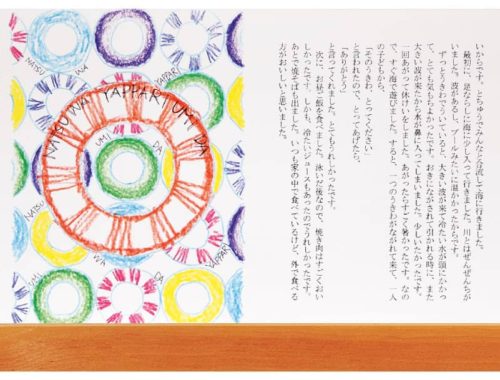 NATSU
WA
YAPPARI
NATSU WA YAPPARI UMI DA
UMI
DA
NATSU
WA
YAPPARI
UMI
DA
いからです。とちゅうでみんなと合流して海に行きました。
最初に、足ならしに海に少し入って行きました。川とはぜんぜんちが
いました。波があるし、プールみたいに温かかったからです。
ずっとうきわでういていると、大きい波が来て冷たい水が頭にかかっ
て、とても気もちよかったです。おきにながされて引かれる時に、また
大きい波が来たから水が鼻に入ってしまいました。少しいたかったです。
一回あがって休けいをしました。あがったらすごく暑かったです。なの
で、すぐ海で遊びました。すると、一つのうきわがながれて来て、一人
の子どもから、
「そのうきわ、とってください」
と言われたので、とってあげたら、
「ありがとう」
と言ってくれました。とてもうれしかったです。
次に、お昼ご飯を食べました。泳いだ後なので、焼き肉はすごくおい
しかったです。しかも、冷たいジュースもあったのでうれしかったです。
あとで焼そばも出ました。いつも家の中で食べているけど、外で食べる
方がおいしいと思いました。